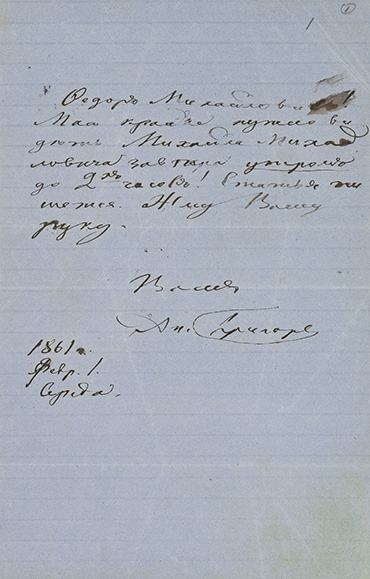 1
1
Ѳедоръ Михайловичъ!
Мнѣ крайне нужно ви
дѣть Михайла Михай
ловича завтра утромъ
до 2хъ часовъ! Статья пи
шется. Жму Вашу
руку.
Вашъ
Ап. Григорь
1861 г.
Февр. 1.
Середа.